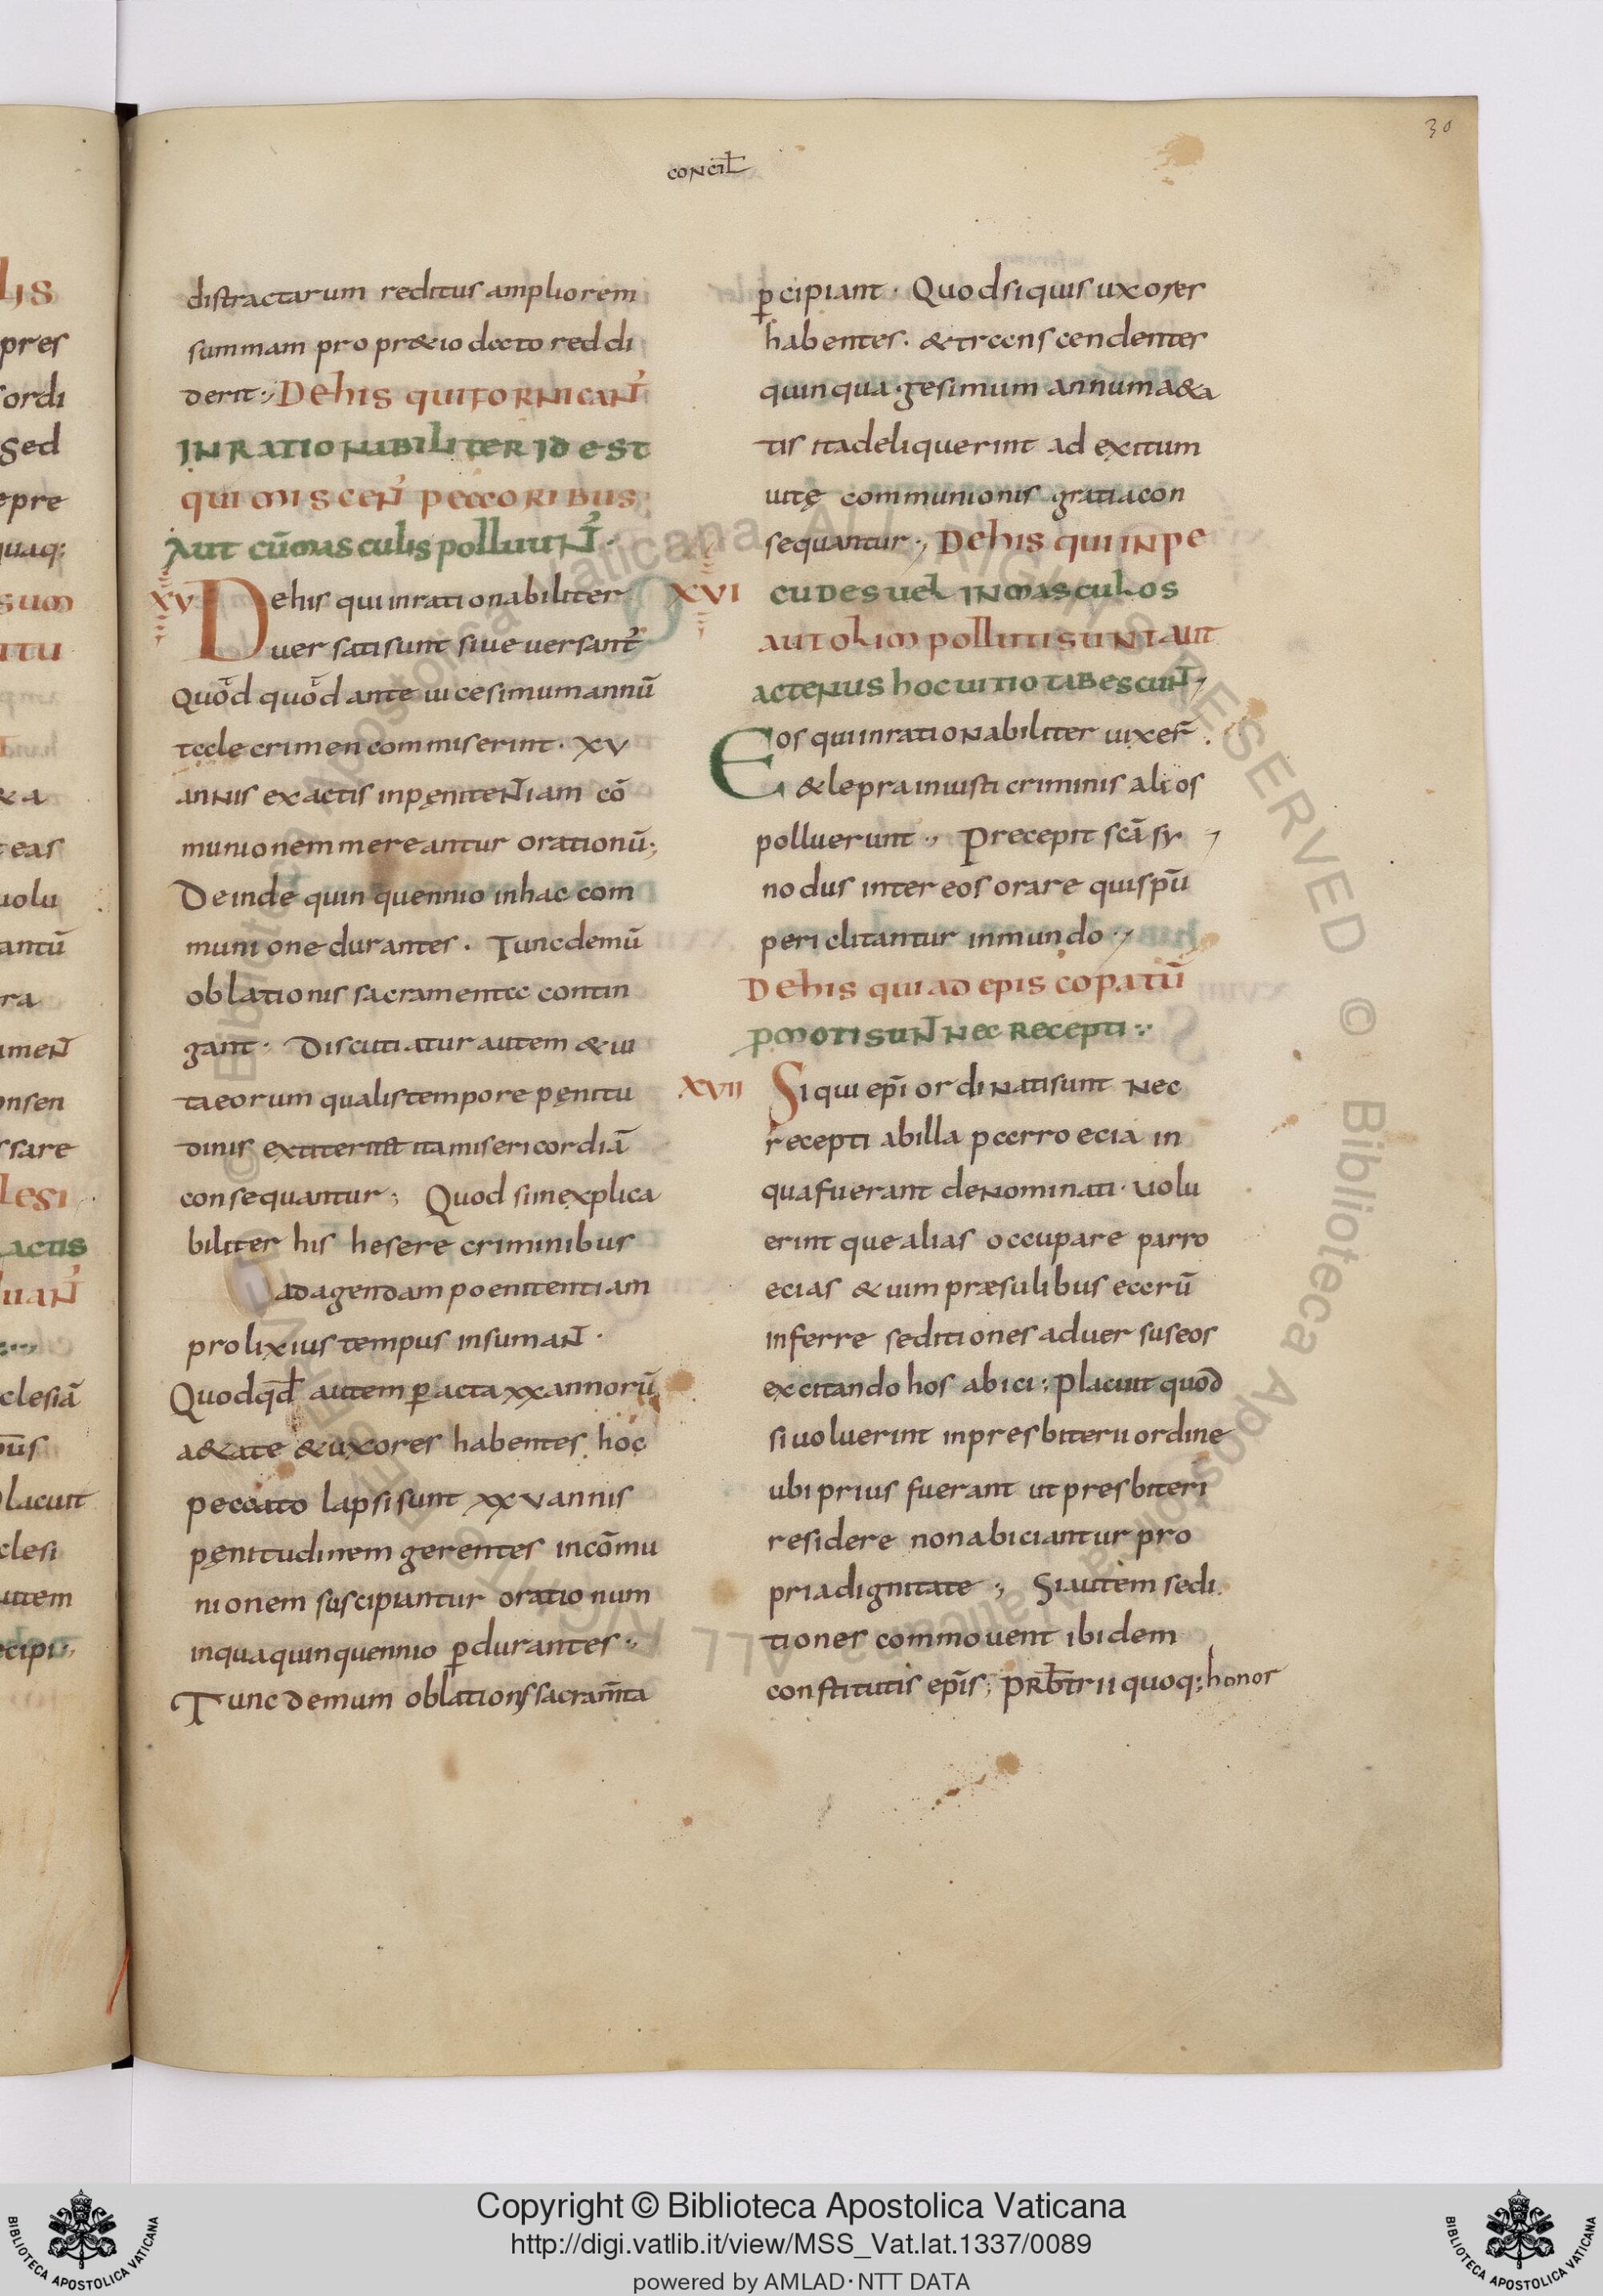 30
conciƚ
distractarum reditus ampliorem
summam pro pr&io dccto reddi
derit:, De his qui fornicanť
inrationabiliter id est
qui miscenť peccoribus
Aut cū masculis polluunť.
XV De his qui inrationabiliter
uersati sunt siue uersanť
Quod quod ante uicesimum annū
tccle crimen commiserint. xv
annis exactis in pęnitentiam cō
munionem mereantur orationū;
Deinde quinquennio in hac com
munione durantes. Tunc demū
oblationis sacramentcc contin
gant. Discutiatur autem & ui
ta eorum qualis tempore pęnitu
dinis extiterint ita misericordiā
consequantur; Quod si inexplica
biliter his hesere criminibus
ad agendam poenitentiam
prolixius tempus insumant.
Quod qd autem peracta xx annorū
a&ate & uxores habentes hoc
peccato lapsi sunt xxv annis
pęnitudinem gerentes in cōmu
nionem suscipiantur orationum
in qua quinquennio ꝑdurantes.
Tunc demum oblationis sacram̄ta
ꝑcipiant. Quod si quis uxores
habentes. & trccnscendentes
quinquagesimum annum a&a
tis ita deliquerint ad exitum
uitę communionis gratia con
sequantur., De his qui in pe
XVI cudes uel in masculos
aut olim polluti sunt aut
actenus hoc uitio tabescunt,
Eos qui inrationabiliter uixeř.
& lepra iniusti criminis alios
polluerunt., Precepit scā sy
nodus inter eos orare qui spū
periclitantur inmundo.,
De his qui ad episcopatū
ꝑmoti sunt nec recepti:
XVII Si qui epī ordinati sunt nec
recepti ab illa pccrroecia in
qua fuerant denominati. uolu
erintque alias occupare parro
ecias & uim præsulibus eccrū
inferre seditiones aduersus eos
excitando hos abici: Placuit quod
si uoluerint in presbiterii ordine
ubi prius fuerant ut presbiteri
residere non abiciantur pro
pria dignitate; Si autem sedi
tiones commouent ibidem
constitutis epīs; prƀtrii quoq; honor
Copyright © Biblioteca Apostolica Vaticana
http://digi.vatlib.it/view/MSS_Vat.lat.1337/0089
powered by AMLAD·NTT DATA